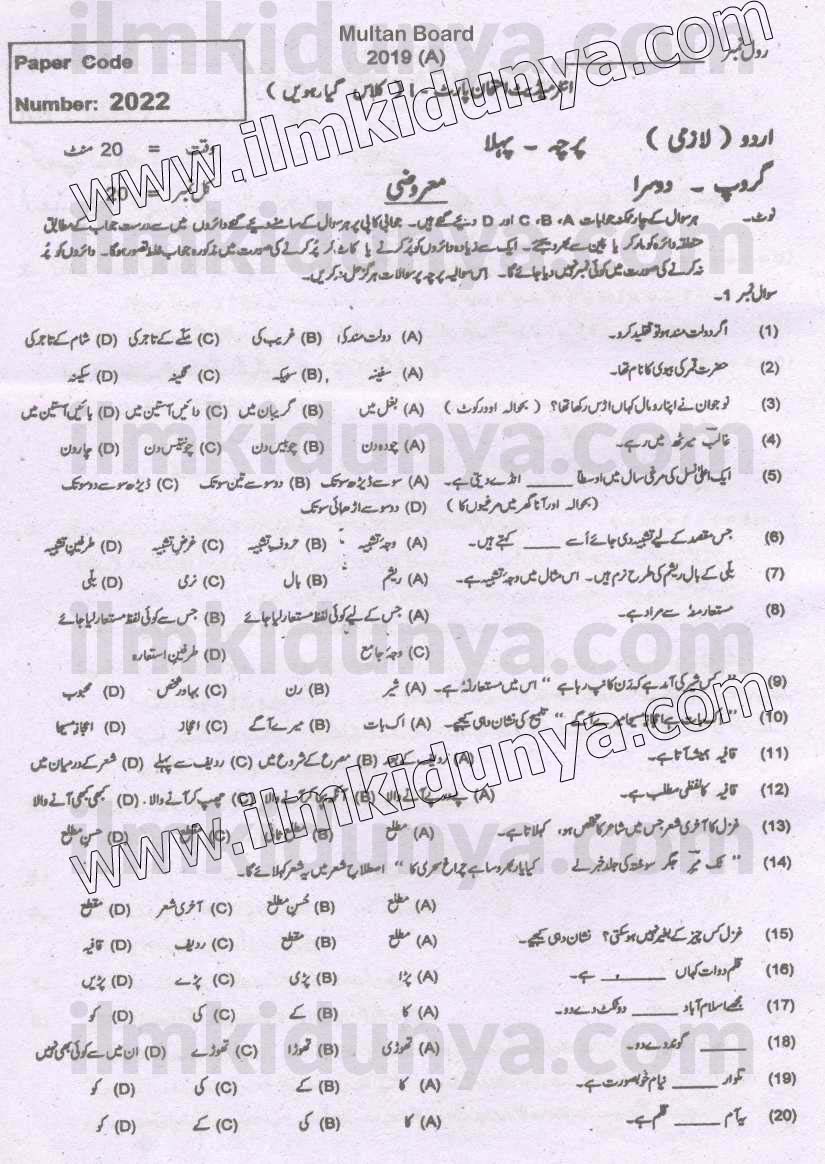 Multan Board
2019 (A)
رول نمبر
Paper Code
Number: 2022
انٹرمیڈیٹ امتحان پارٹ - کلاس - گیارہویں )
اردو ( لازمی ) پرچہ - پہلا وقت = 20 منٹ
گروپ - دوسرا معروضی کل نمبر = 20
نوٹ۔ ہر سوال کے چار ممکنہ جوابات A، B، C اور D دیئے گئے ہیں۔ جوابی کاپی پر ہر سوال کے سامنے دیئے گئے دائروں میں سے درست جواب کے مطابق
متعلقہ دائرہ کو مارکر یا پین سے بھر دیجئے۔ ایک سے زیادہ دائروں کو پُر کرنے یا کاٹ کر پُر کرنے کی صورت میں مذکورہ جواب غلط تصور ہوگا۔ دائروں کو پُر
نہ کرنے کی صورت میں کوئی نمبر نہیں دیا جائے گا۔ اس سوالیہ پرچہ پر سوالات ہرگز حل نہ کریں۔
سوال نمبر 1۔
(1) اگر دولت مند ہو تو تقلید کرو۔ (A) دولت مند کی (B) غریب کی (C) مکے کے تاجر کی (D) شام کے تاجر کی
(2) حضرت قمر کی بیوی کا نام تھا۔ (A) سفینہ (B) سبیکہ (C) نگینہ (D) سکینہ
(3) نوجوان نے اپنا رومال کہاں اڑس رکھا تھا؟ ( بحوالہ اوورکوٹ ) (A) بغل میں (B) گریبان میں (C) دائیں آستین میں (D) بائیں آستین میں
(4) غالب میرٹھ میں رہے۔ (A) چودہ دن (B) چوبیس دن (C) چونتیس دن (D) چار دن
(5) ایک اعلیٰ نسل کی مرغی سال میں اوسطاً _____ انڈے دیتی ہے۔ (A) سو سے ڈیڑھ سو تک (B) دو سو سے تین سو تک (C) ڈیڑھ سو سے دو سو تک
(بحوالہ اور آنا گھر میں مرغیوں کا ) (D) دو سو سے اڑھائی سو تک
(6) جس مقصد کے لیے تشبیہ دی جائے اُسے _____ کہتے ہیں۔ (A) وجہ تشبیہ (B) حروف تشبیہ (C) غرض تشبیہ (D) طرفین تشبیہ
(7) بلی کے بال ریشم کی طرح نرم ہیں۔ اس مثال میں وجہ تشبیہ ہے۔ (A) ریشم (B) بال (C) نرمی (D) بلی
(8) مستعار منہ سے مراد ہے۔ (A) جس کے لیے کوئی لفظ مستعار لیا جائے (B) جس سے کوئی لفظ مستعار لیا جائے
(C) وجہ جامع (D) طرفین استعارہ
(9) " کس شیر کی آمد ہے کہ رَن کانپ رہا ہے " اس میں مستعار لہٗ ہے۔ (A) شیر (B) رن (C) بہادر شخص (D) محبوب
(10) " اک بات ہے اعجاز مسیحا مرے آگے " تلمیح کی نشان دہی کیجیے۔ (A) اک بات (B) میرے آگے (C) اعجاز (D) اعجاز مسیحا
(11) قافیہ ہمیشہ آتا ہے۔ (A) ردیف کے بعد (B) مصرع کے شروع میں (C) ردیف سے پہلے (D) شعر کے درمیان میں
(12) قافیہ کا لفظی مطلب ہے۔ (A) پے در پے آنے والا (B) آنے والا (C) چھپ کر آنے والا (D) کبھی کبھی آنے والا
(13) غزل کا آخری شعر جس میں شاعر کا تخلص ہو، کہلاتا ہے۔ (A) مطلع (B) مطلع ثانی (C) مقطع (D) حسن مطلع
(14) " ٹک میر جگر سوختہ کی جلد خبر لے کیا یار بھروسا ہے چراغ سحری کا " اصطلاح شعر میں یہ شعر کہلائے گا۔
(A) مطلع (B) حُسن مطلع (C) آخری شعر (D) مقطع
(15) غزل کس چیز کے بغیر نہیں ہو سکتی؟ نشان دہی کیجیے۔ (A) مطلع (B) مقطع (C) ردیف (D) قافیہ
(16) قلم دوات کہاں _____ ہے۔ (A) پڑا (B) پڑی (C) پڑے (D) پڑیں
(17) مجھے اسلام آباد _____ دو ٹکٹ دے دو۔ (A) کا (B) کے (C) کی (D) کو
(18) _____ گوند دے دو۔ (A) تھوڑی (B) تھوڑا (C) تھوڑے (D) ان میں سے کوئی بھی نہیں
(19) تلوار _____ نیام خوبصورت ہے۔ (A) کا (B) کے (C) کی (D) کو
(20) یہ آم _____ قلم ہے۔ (A) کا (B) کی (C) کے (D) کو
www.ilmkidunya.com
www.ilmkidunya.com
ilmkidunya.com